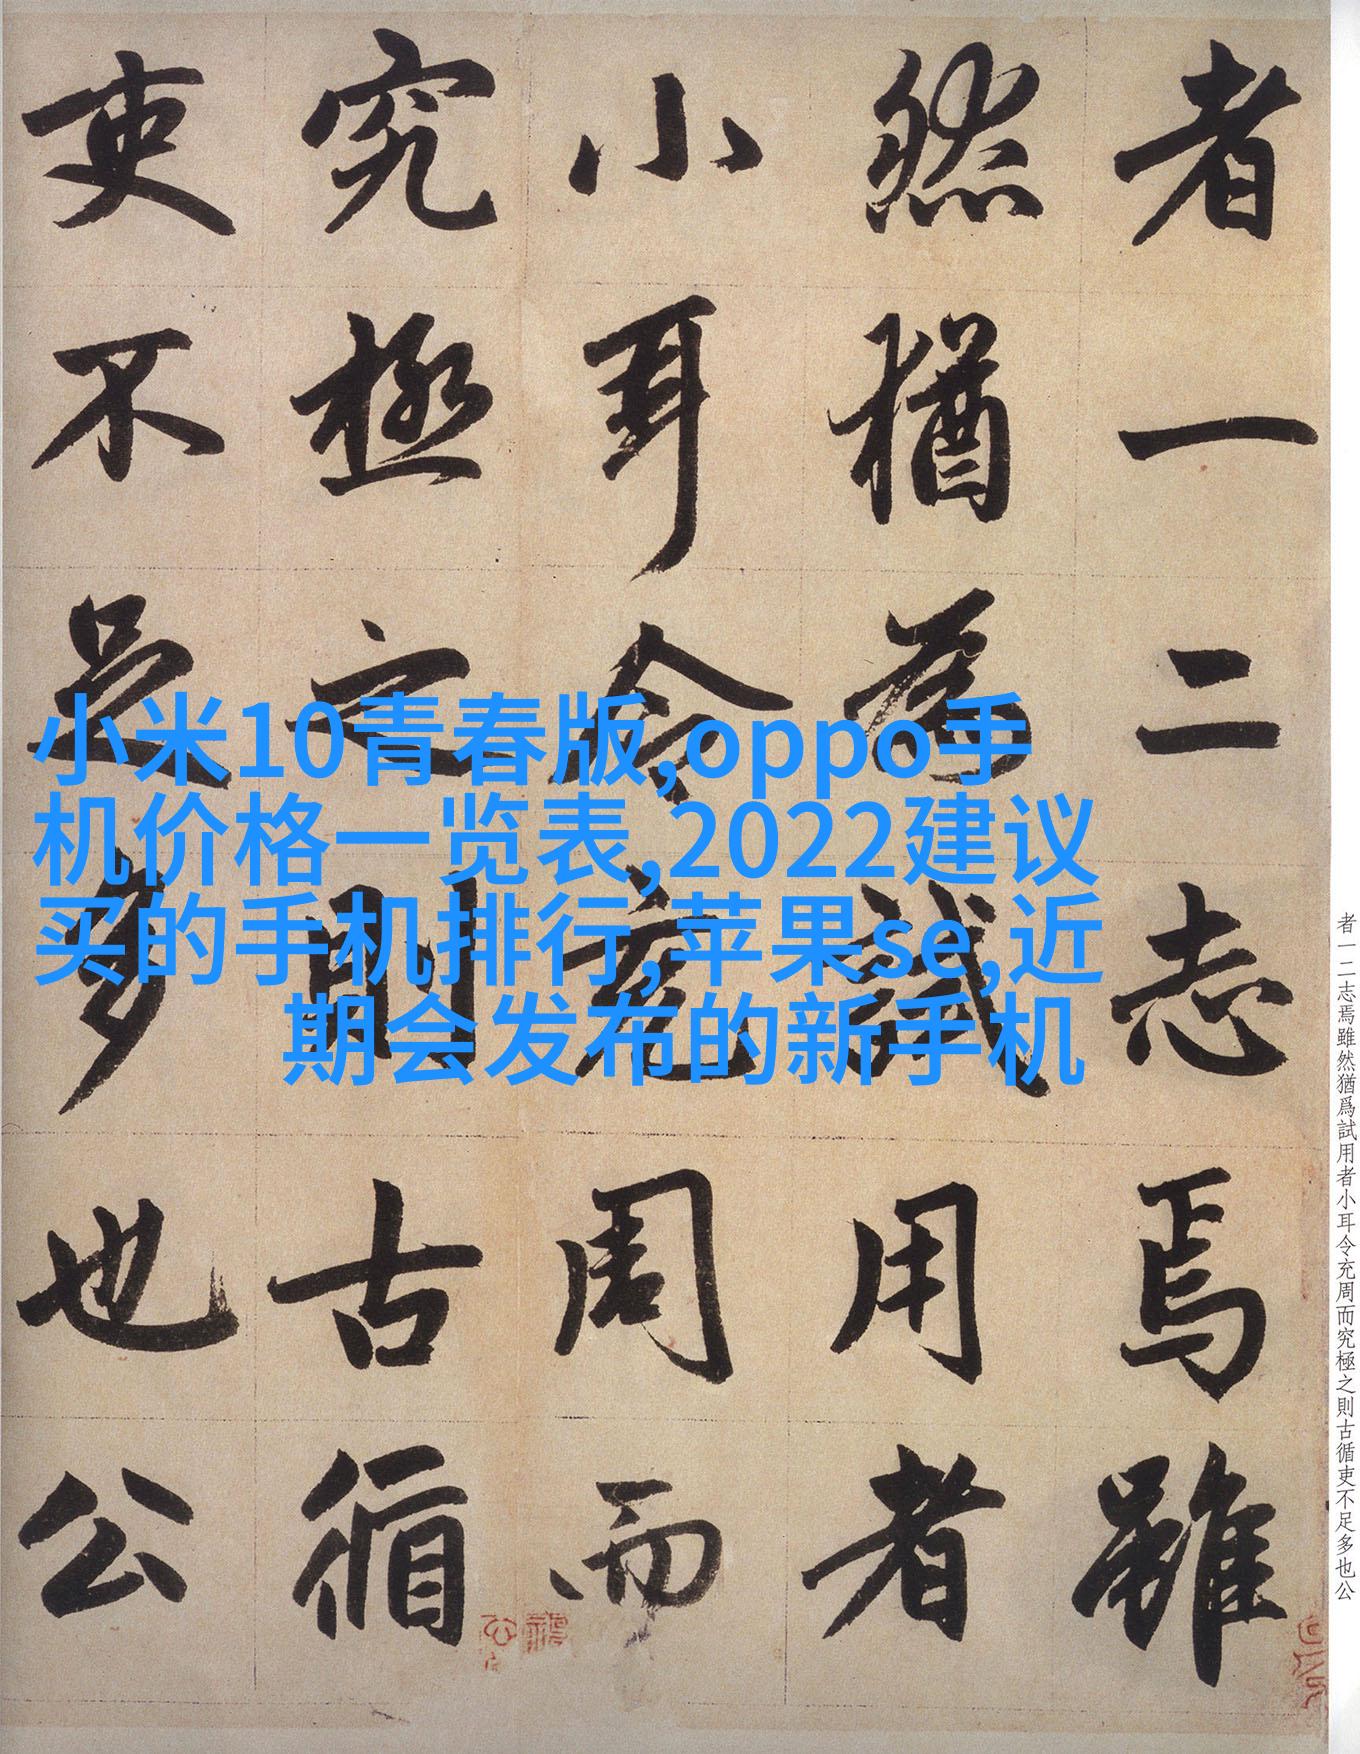 者一二志焉雖
然猶為試用者
小耳令充周而
究極之則古循
吏不足多也公
小米10青春版,oppo手
机价格一览表,2022建议
买的手机排行,苹果se,近
期会发布的新手机
者一二志焉雖然猶爲試用者小耳令充周而究極之則古循吏不足多也公